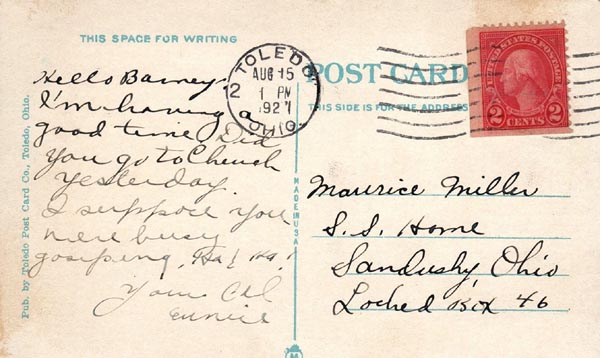 THIS SPACE FOR WRITING
Hello Barney
I'm having a
good time Did
you go to Church
Yesterday.
I suppose you
were busy
gosiping, Ha! Ha!
Your
Eunice
Pub. by Toledo Post Card Co., Toledo, Ohio.
MADE IN USA
TOLEDO
AUG 15
1 PM
1927
OHIO
2
POST CARD
THIS SIDE IS FOR THE ADDRESS
UNITED STATES POSTAGE
2 CENTS 2
Maurice Miller
S.S. Home
Sandusky Ohio
Locked Box 46